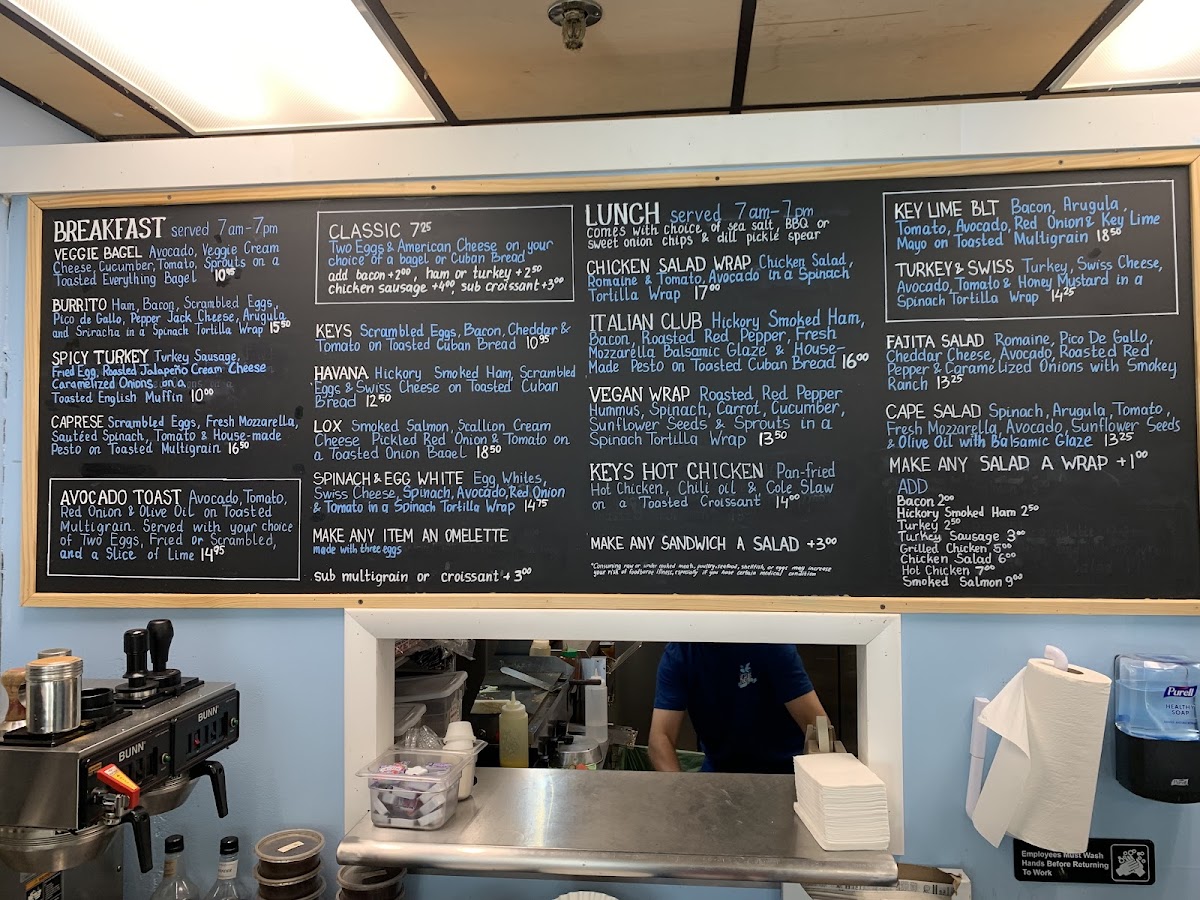 BREAKFAST served 7am-7pm
VEGGIE BAGEL Avocado, Veggie Cream
Cheese, Cucumber, Tomato, Sprouts on a
Toasted Everything Bagel 10⁹⁵
BURRITO Ham, Bacon, Scrambled Eggs,
Pico de Gallo, Pepper Jack Cheese, Arugula
and Sriracha in a Spinach Tortilla Wrap 15⁵⁰
SPICY TURKEY Turkey Sausage,
Fried Egg, Roasted Jalapeño Cream Cheese
Caramelized Onions on a
Toasted English Muffin 10⁰⁰
CAPRESE Scrambled Eggs, Fresh Mozzarella,
Sautéed Spinach, Tomato & House-made
Pesto on Toasted Multigrain 16⁵⁰
AVOCADO TOAST Avocado, Tomato,
Red Onion & Olive Oil on Toasted
Multigrain. Served with your choice
of Two Eggs, Fried or Scrambled,
and a Slice of Lime 14⁹⁵
CLASSIC 7²⁵
Two Eggs & American Cheese on your
choice of a bagel or Cuban Bread
add bacon +2⁰⁰, ham or turkey +2⁵⁰
chicken sausage +4⁰⁰, sub croissant +3⁰⁰
KEYS Scrambled Eggs, Bacon, Cheddar &
Tomato on Toasted Cuban Bread 10⁹⁵
HAVANA Hickory Smoked Ham, Scrambled
Eggs & Swiss Cheese on Toasted Cuban
Bread 12⁵⁰
LOX Smoked Salmon, Scallion Cream
Cheese Pickled Red Onion & Tomato on
a Toasted Onion Bagel 18⁵⁰
SPINACH & EGG WHITE Egg Whites,
Swiss Cheese, Spinach, Avocado, Red Onion
& Tomato in a Spinach Tortilla Wrap 14⁷⁵
MAKE ANY ITEM AN OMELETTE
made with three eggs
sub multigrain or croissant +3⁰⁰
LUNCH served 7am-7pm
comes with choice of sea salt, BBQ or
sweet onion chips & dill pickle spear
CHICKEN SALAD WRAP Chicken Salad,
Romaine & Tomato, Avocado in a Spinach
Tortilla Wrap 17⁰⁰
ITALIAN CLUB Hickory Smoked Ham,
Bacon, Roasted Red Pepper, Fresh
Mozzarella Balsamic Glaze & House-
Made Pesto on Toasted Cuban Bread 16⁰⁰
VEGAN WRAP Roasted Red Pepper
Hummus, Spinach, Carrot, Cucumber,
Sunflower Seeds & Sprouts in a
Spinach Tortilla Wrap 13⁵⁰
KEYS HOT CHICKEN Pan-fried
Hot Chicken, Chili oil & Cole Slaw
on a Toasted Croissant 14⁰⁰
MAKE ANY SANDWICH A SALAD +3⁰⁰
*Consuming raw or under cooked meats, poultry, seafood, shellfish, or eggs may increase
your risk of foodborne illness, especially if you have certain medical condition
KEY LIME BLT Bacon, Arugula,
Tomato, Avocado, Red Onion & Key Lime
Mayo on Toasted Multigrain 18⁵⁰
TURKEY & SWISS Turkey, Swiss Cheese,
Avocado, Tomato & Honey Mustard in a
Spinach Tortilla Wrap 14²⁵
FAJITA SALAD Romaine, Pico De Gallo,
Cheddar Cheese, Avocado, Roasted Red
Pepper & Caramelized Onions with Smokey
Ranch 13²⁵
CAPE SALAD Spinach, Arugula, Tomato,
Fresh Mozzarella, Avocado, Sunflower Seeds
& Olive Oil with Balsamic Glaze 13²⁵
MAKE ANY SALAD A WRAP +1⁰⁰
ADD
Bacon 2⁰⁰
Hickory Smoked Ham 2⁵⁰
Turkey 2⁵⁰
Turkey Sausage 3⁰⁰
Grilled Chicken 5⁰⁰
Chicken Salad 6⁰⁰
Hot Chicken 7⁰⁰
Smoked Salmon 9⁰⁰
BUNN
BUNN
Purell
HEALTHY
SOAP
Employees Must Wash
Hands Before Returning
To Work